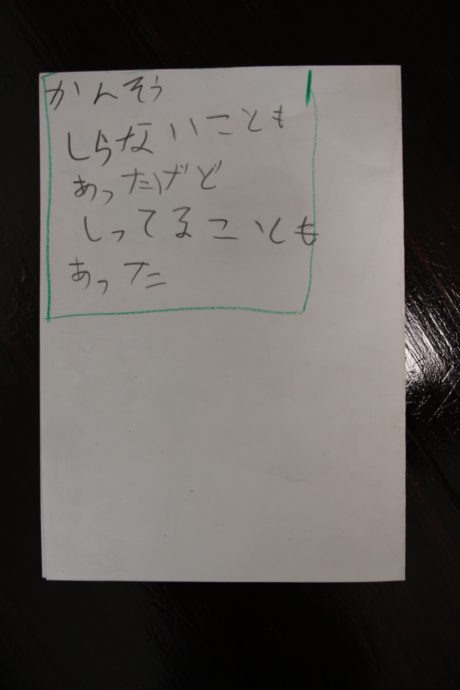 かんそう
しらないことも
あったけど
しってることも
あった